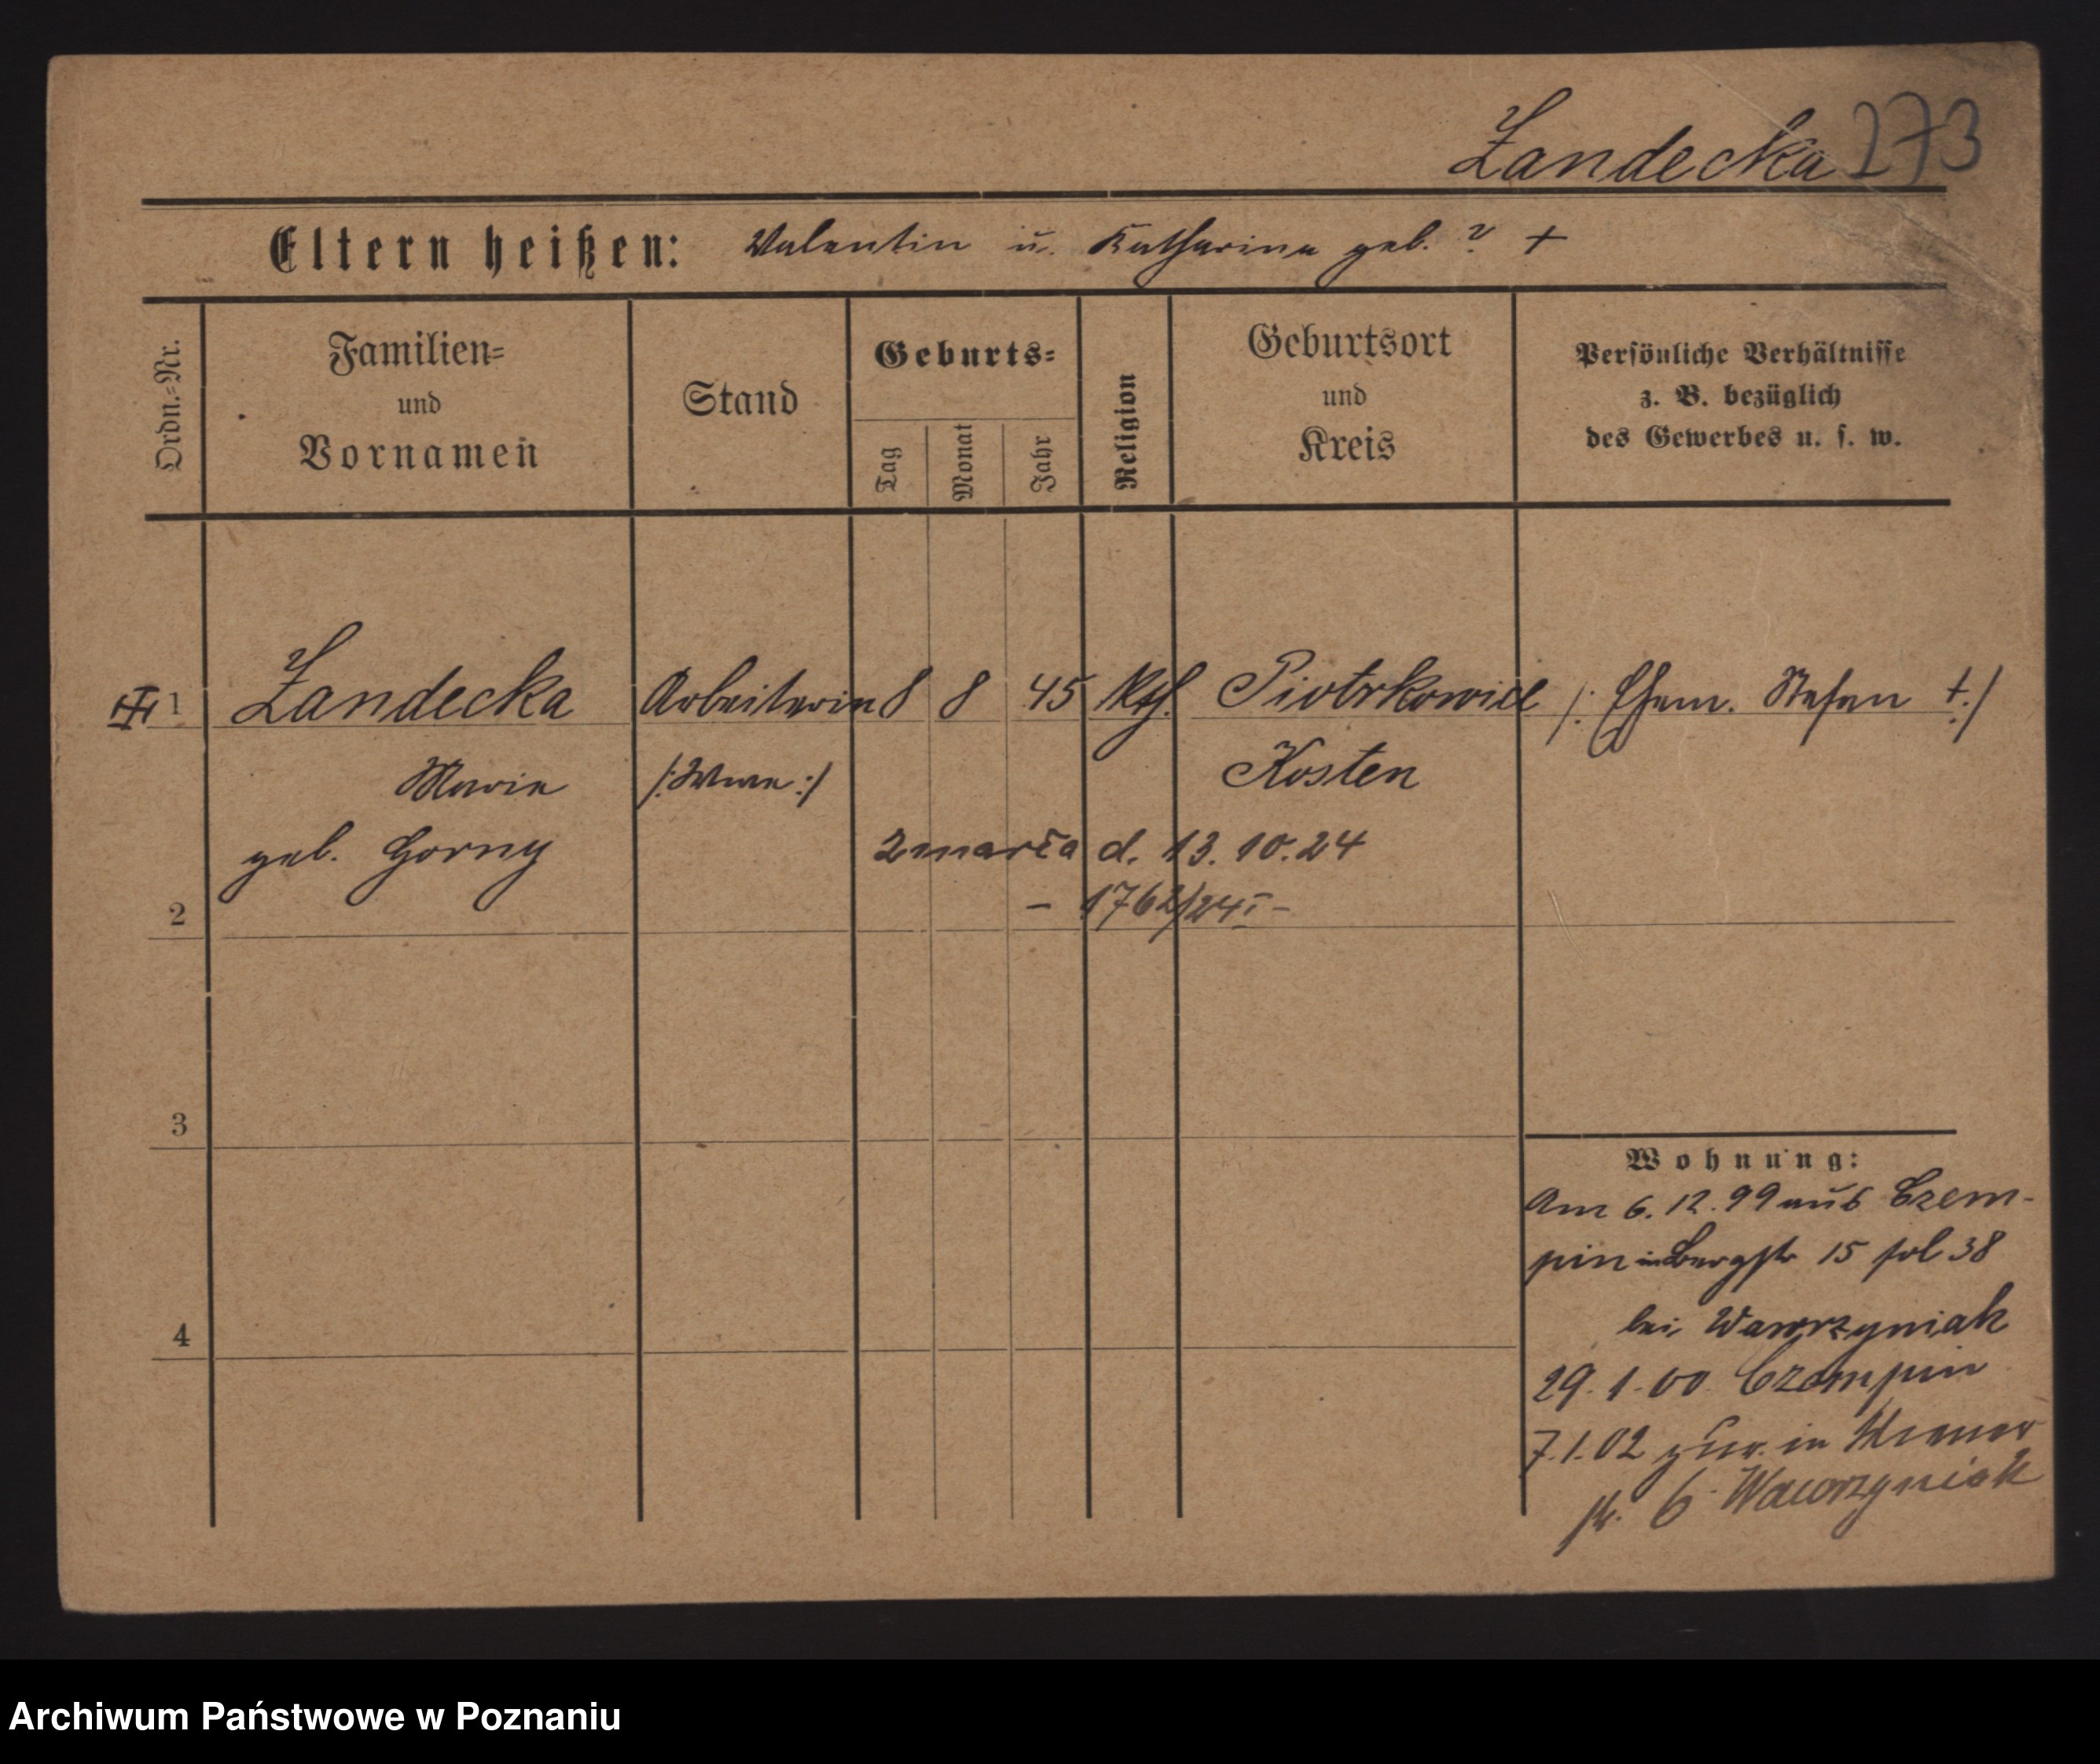 Zandecka 273
Eltern heißen: Valentin u. Katharina geb. ? +
Ordn.-Nr.
Familien-
und
Vornamen
Stand
Geburts-
Tag
Monat
Jahr
Religion
Geburtsort
und
Kreis
Persönliche Verhältnisse
z. B. bezüglich
des Gewerbes u. s. w.
1 Zandecka Arbeiterin 8 8 45 Kth. Piotrkowice /: Ehem. Stefan +:/
Marie /: Wwe :/ Kosten
geb. Gorny zmarła d. 13.10.24
2 – 1762/24 I –
3
Wohnung:
Am 6.12.99 aus Czem-
pin in Bergstr 15 fol 38
4 bei Wawrzyniak
29.1.00 Czempin
7.1.02 zur. in
str. 6 Wawrzyniak
Archiwum Państwowe w Poznaniu